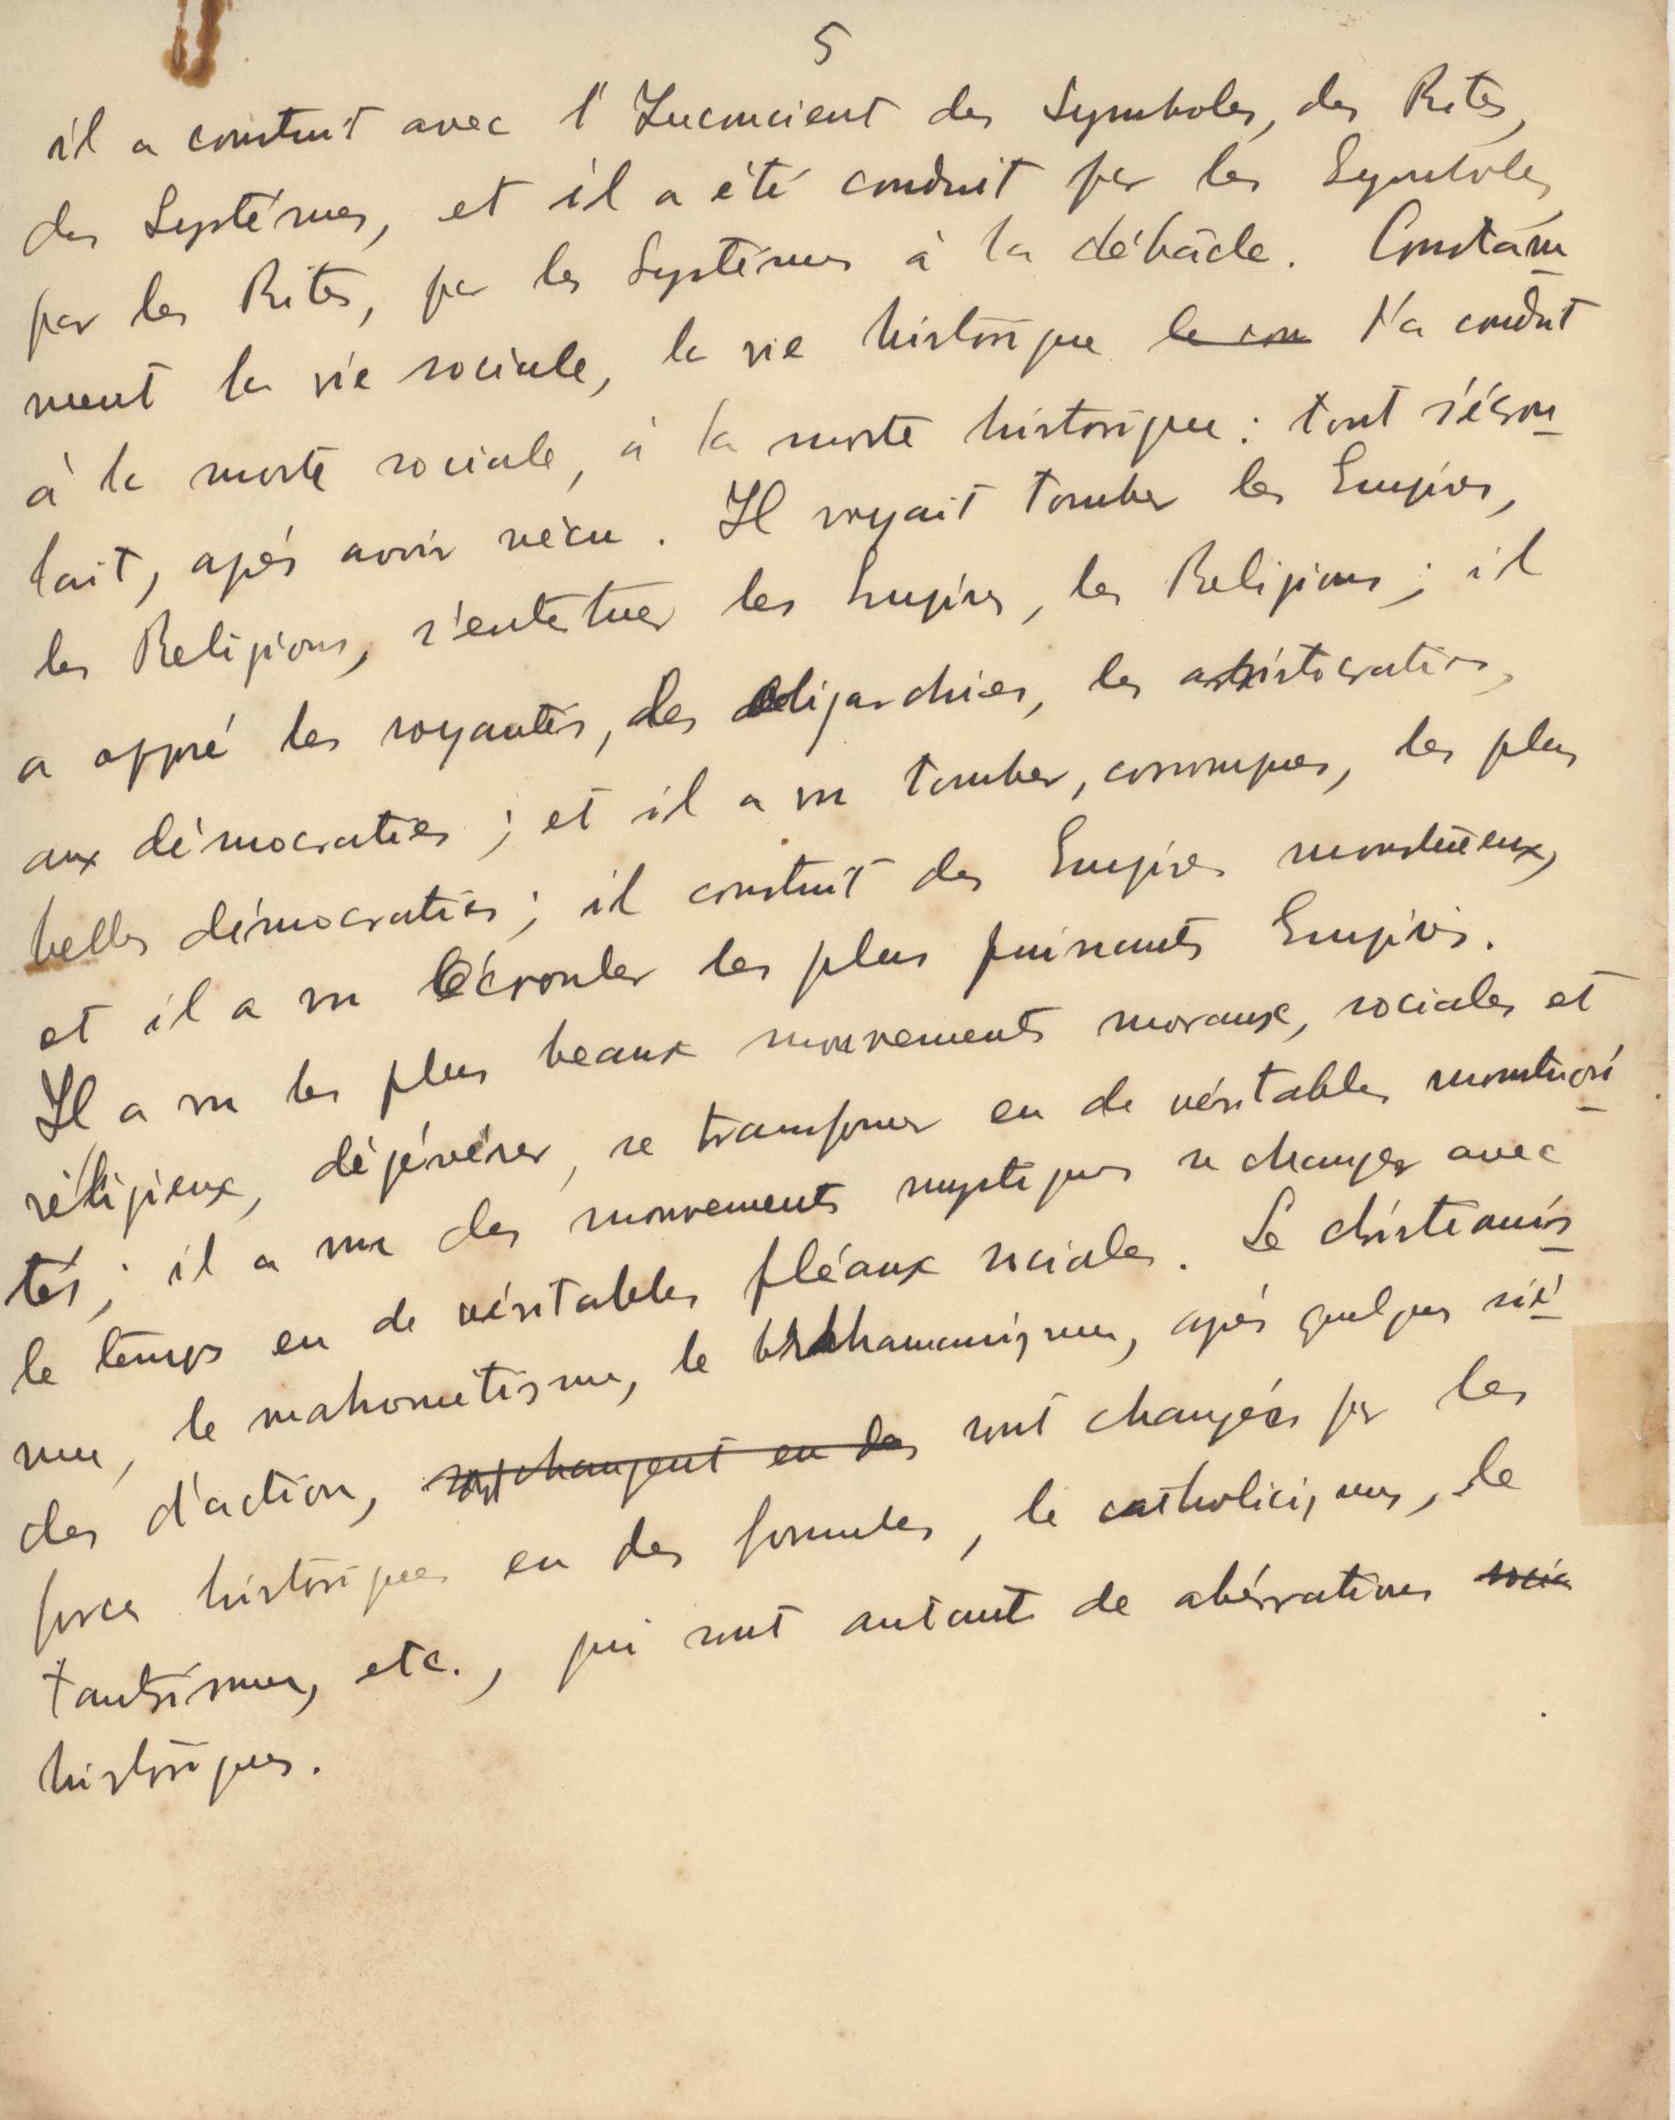 5
il a construit avec l'Inconcient des Symboles, des Rites,
des Systémes, et il a été conduit par les Symboles,
par les Rites, par les Systémes à la débâcle. Constam
ment la vie sociale, la vie historique le con l'a conduit
à la morte sociale, à la morte historique : tout s'écrou
lait, aprés avoir vécu. Il voyait tomber les Empires,
les Religions, s'entetuer les Empires, les Religions ; il
a oppré les royautés, des oligarchies, les aristocraties,
aux démocraties ; et il a vu tomber, corrompues, les plus
belles démocraties ; il construit des Empires monstrueux,
et il a vu s'écrouler les plus puissants Empires.
Il a vu les plus beaux mouvements moraux, sociales et
réligieux, dégénérer, se transformer en de véritables monstruosi
tés ; il a vu des mouvements mystiques se changer avec
le temps en de véritables fléaux sociales. Le christianis
me, le mahométisme, le brahamanisme, aprés quelques sié
cles d'action, changent en des sont changées par les
forces historiques en des formules, le catholicisme, le
tantrisme, etc., qui sont autant de abérrations socia
historiques.